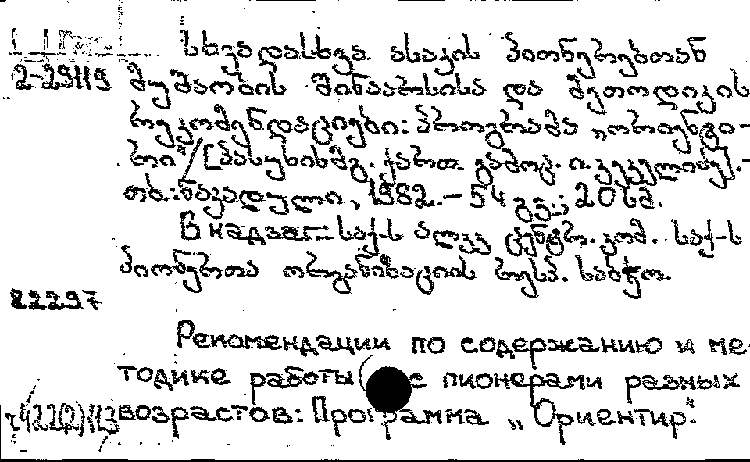 სხვადასხვა ასაკის პიონერებთან
2-29119 მუშაობის შინაარსისა და მეთოდიკის
რეკომენდაციები: პროგრამა „ორიენტი-
რი"/[პასუხისმგ. ქართ. გამოც. ი. კეკელიძე].-
თბ.: ნაკადული, 1982.- 54 გვ.; 20 სმ.
В надзаг.: საქ-ს ალკკ ცენტრ. კომ. საქ-ს
პიონერთა ორგანიზაციის რესპ. საბჭო.
82297
Рекомендации по содержанию и ме-
тодике работы с пионерами разных
возрастов: Программа „Ориентир".